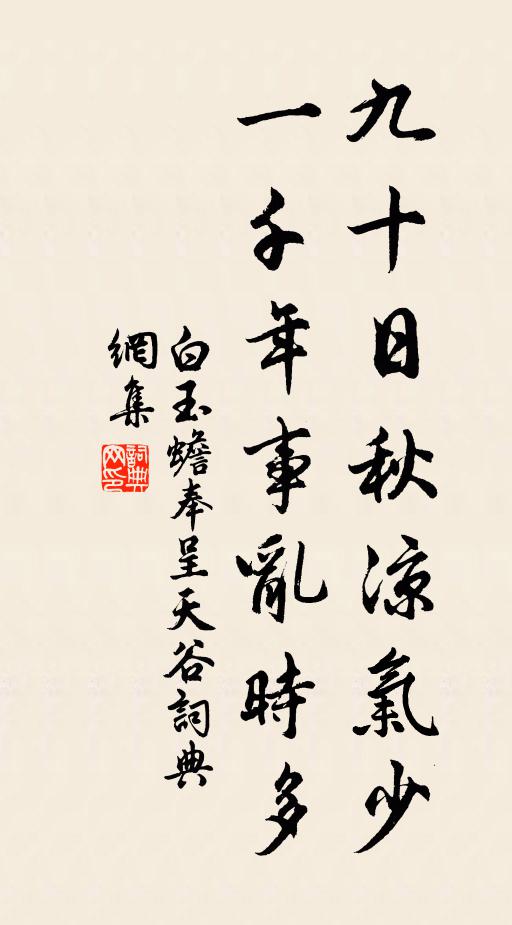 九十日秋涼氣少
一千年事亂時多
白玉蟾奉呈天谷詞典
網集
詞典網印